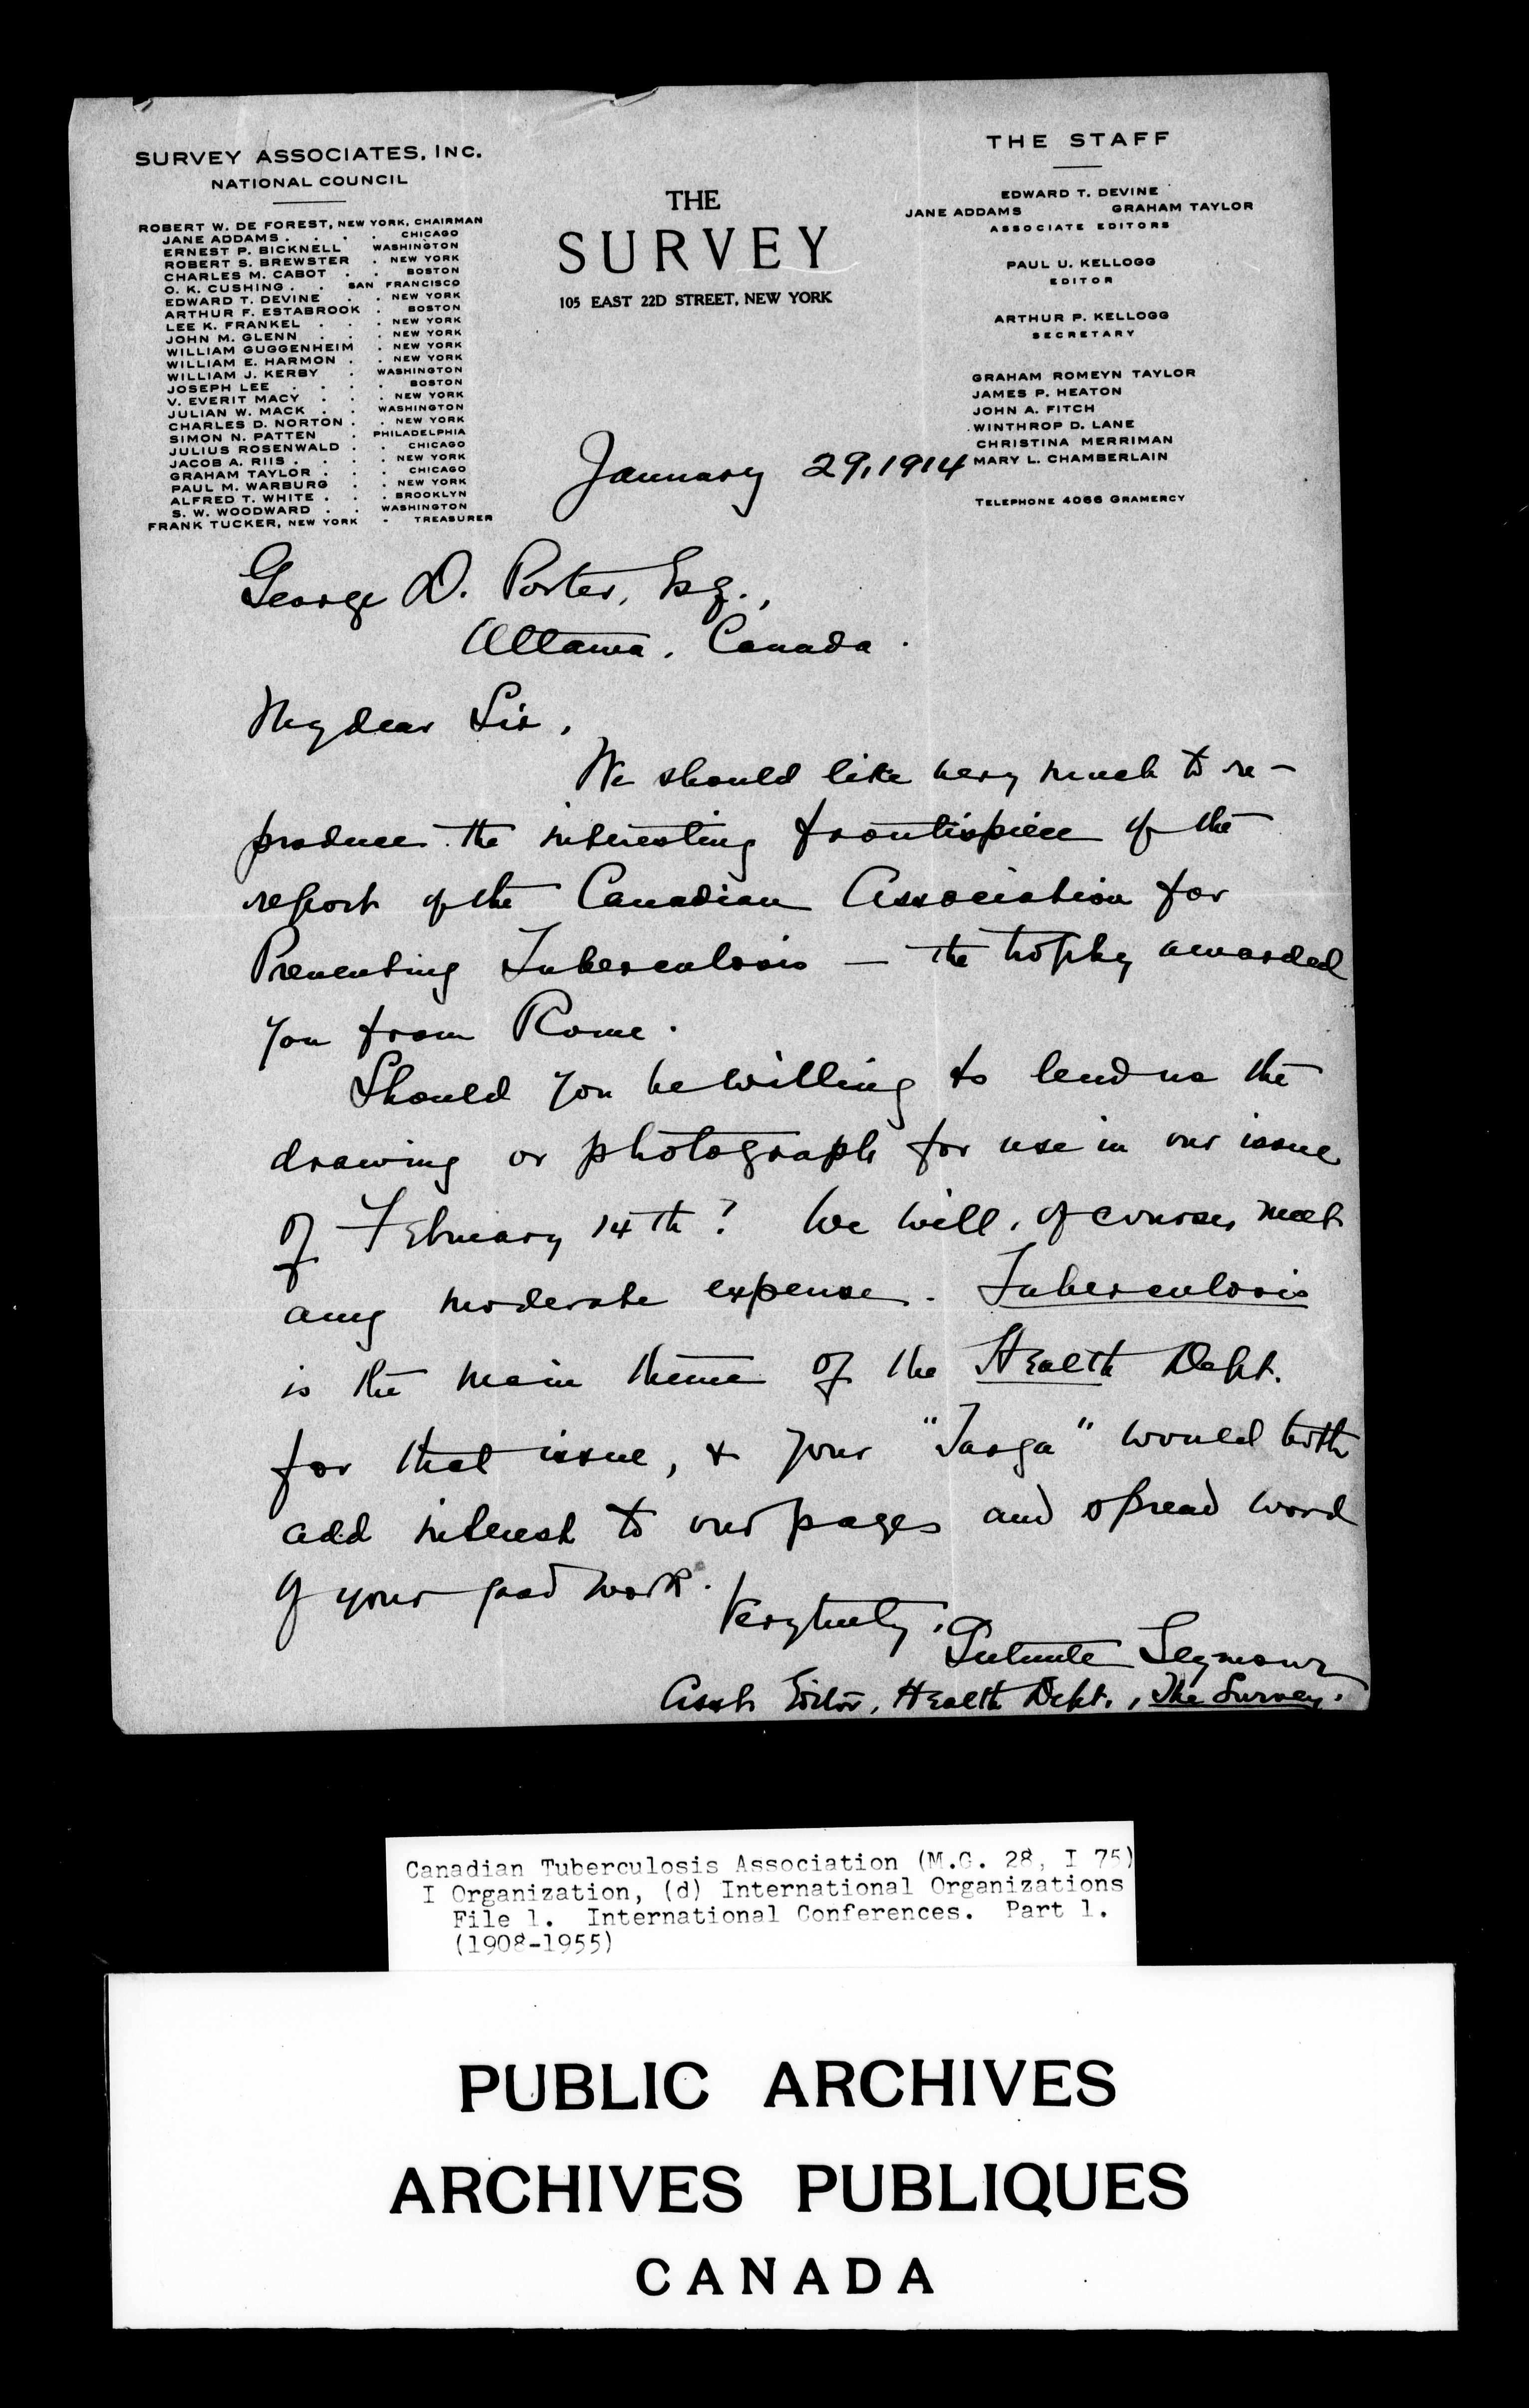 SURVEY ASSOCIATES, INC.
NATIONAL COUNCIL
ROBERT W. DE FOREST, NEW YORK, CHAIRMAN
JANE ADDAMS . . . . CHICAGO
ERNEST P. BICKNELL WASHINGTON
ROBERT S. BREWSTER . NEW YORK
CHARLES M. CABOT . . BOSTON
O. K. CUSHING . . SAN FRANCISCO
EDWARD T. DEVINE . . NEW YORK
ARTHUR F. ESTABROOK . BOSTON
LEE K. FRANKEL . . . NEW YORK
JOHN M. GLENN . . . NEW YORK
WILLIAM GUGGENHEIM . NEW YORK
WILLIAM E. HARMON . . NEW YORK
WILLIAM J. KERBY . WASHINGTON
JOSEPH LEE . . . . BOSTON
V. EVERIT MACY . . . NEW YORK
JULIAN W. MACK . . WASHINGTON
CHARLES D. NORTON . . NEW YORK
SIMON N. PATTEN . PHILADELPHIA
JULIUS ROSENWALD . . CHICAGO
JACOB A. RIIS . . . . NEW YORK
GRAHAM TAYLOR . . . CHICAGO
PAUL M. WARBURG . . NEW YORK
ALFRED T. WHITE . . . BROOKLYN
S. W. WOODWARD . . WASHINGTON
FRANK TUCKER, NEW YORK - TREASURER
THE
SURVEY
105 EAST 22D STREET, NEW YORK
THE STAFF
EDWARD T. DEVINE
JANE ADDAMS GRAHAM TAYLOR
ASSOCIATE EDITORS
PAUL U. KELLOGG
EDITOR
ARTHUR P. KELLOGG
SECRETARY
GRAHAM ROMEYN TAYLOR
JAMES P. HEATON
JOHN A. FITCH
WINTHROP D. LANE
CHRISTINA MERRIMAN
MARY L. CHAMBERLAIN
TELEPHONE 4066 GRAMERCY
January 29, 1914
George D. Porter, Esq.,
Ottawa, Canada.
My dear Sir,
We should like very much to re-
produce the interesting frontispiece of the
report of the Canadian Association for
Preventing Tuberculosis — the trophy awarded
you from Rome.
Should you be willing to lend us the
drawing or photograph for use in our issue
of February 14th? We will, of course, meet
any moderate expense. Tuberculosis
is the main theme of the Health Dept.
for that issue, & your "Targa" would both
add interest to our pages and spread word
of your good work.
Very truly,
Gertrude Seymour
Asst. Editor, Health Dept., The Survey.
Canadian Tuberculosis Association (M.G. 28, I 75)
I Organization, (d) International Organizations
File 1. International Conferences. Part 1.
(1908-1955)
PUBLIC ARCHIVES
ARCHIVES PUBLIQUES
CANADA